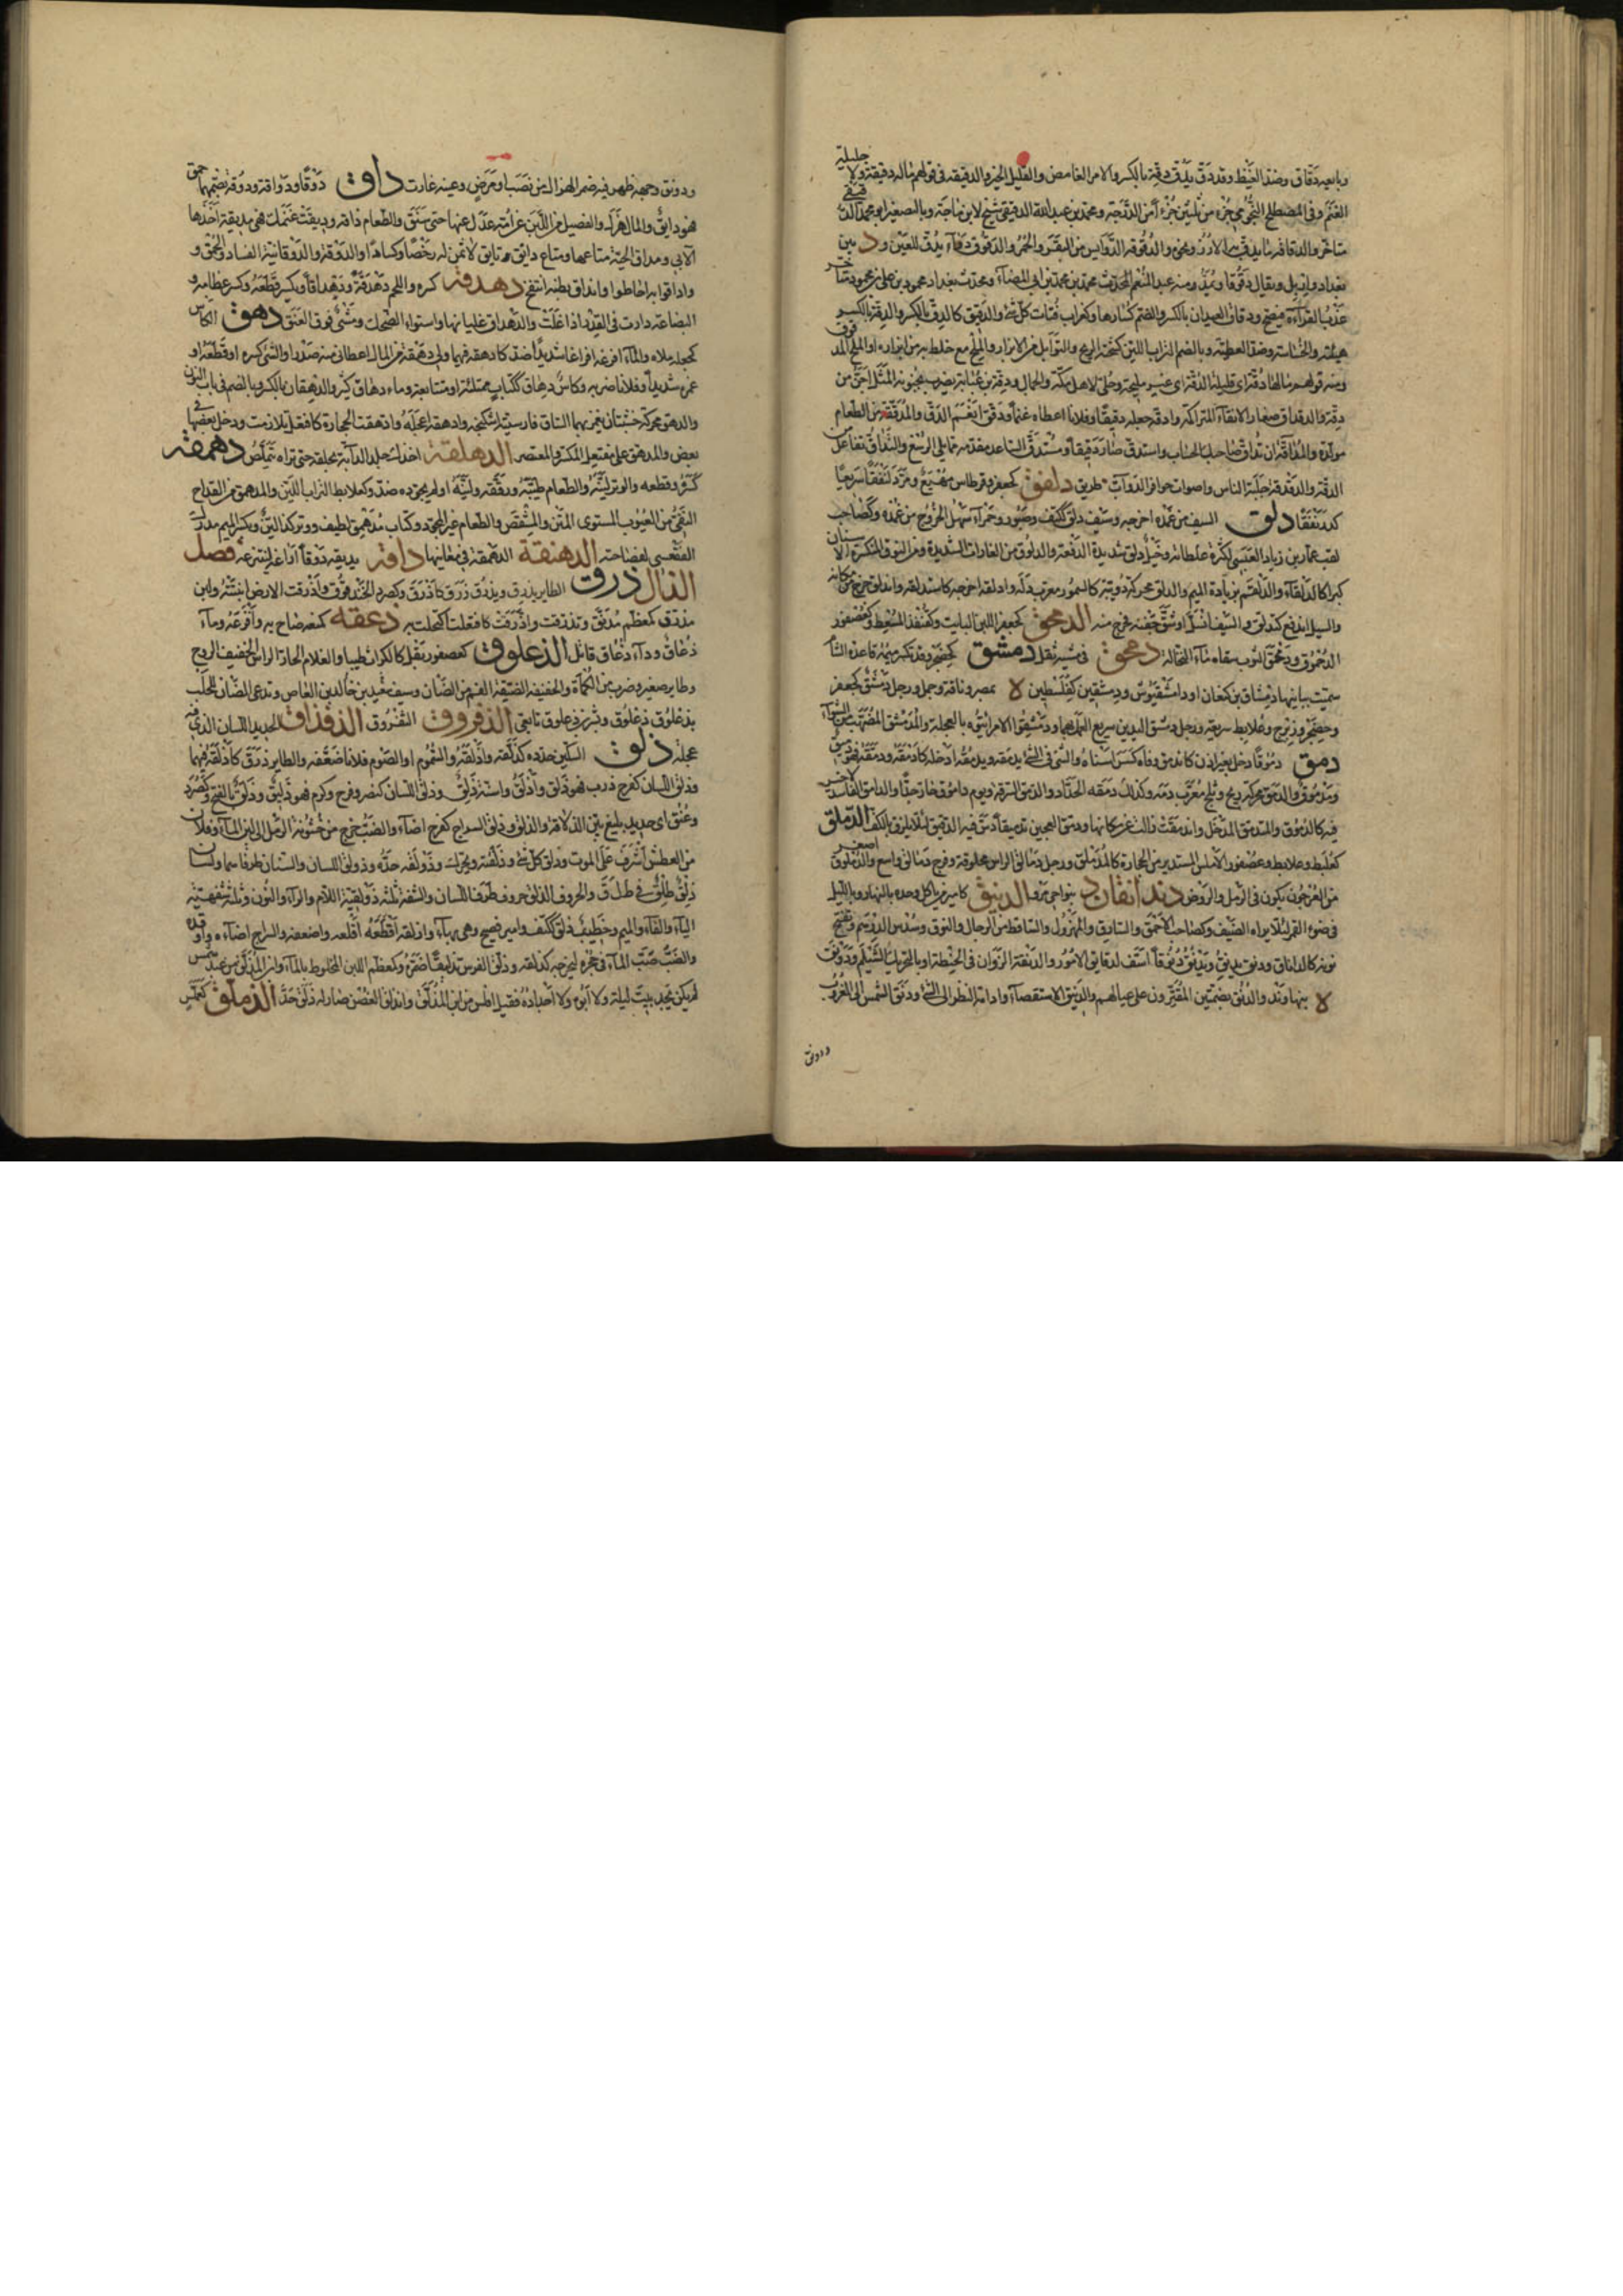 وبائعه دقاق وضد الغيظ وقد دق يدق دقة بالكسر والامر الغامض والقليل الخير والدقيقة في قولهم ماله دقيقة ولا جليلة
الغنم وفي المصطلح النجومي جزء من ثلثين جزءا من الدرجة ومحمد بن عبد الله الدقيقي شيخ لابن ماجة وبالمصغر ابو محمد الدقيقي
متاخر والدقاقة ما يدق به الارز ونحوه والدقوقة الدوايس من البقر والحمر والدقوق دواء يدق للعين ود بين
بغداد واربل ويقال دقوقا ويمد ومنه عبد المنعم المحدث محمد بن محمد بن ابي المضاء ومحدث بغداد محمود بن علي بن محمود متاخر
عذب القراءة فصيح ودقاق العيدان بالكسر والضم كسارها وكغراب فتات كل شئ والدقيق كالدق بالكسر والدقة بالكسر
هيئته والخساسة وضد العظمة وبالضم التراب اللين كسحته الريح والتوابل من الابزار والملح مع ما خلط به من ابزاره او الملح المدقوق
ومنه قولهم مالها دقة اي قليلة الدقة اي غير مليحة وحلي لاهل مكة والجمال ودقة بن عبابة يضرب بجنونه المثل اجن من
دقة والدقداق صغار الانقاء المتراكمة وادقه جعله دقيقا وفلانا اعطاه غنما ودقق انعم الدق والمدققة من الطعام
مولدة والمداقة ان تداق صاحبك الحساب واستدق صار دقيقا ومستدق الساعد مقدمه مما يلي الرسغ والتداق تفاعل من
الدقة والدقدقة جلبة الناس واصوات حوافر الدواب طريق دلفق كجعفر وقرطاس مهيع ومر درنفقا سريعا
كدرنفقا دلق السيف من غمده اخرجه وسيف دلق ككتف وصبور وحمراء سهل الخروج من غمده وكصاحب
لقب عمارة بن زياد العبسي لكثرة غلطاته وخيل دلق شديدة الدفعة والدلوق من الغارات الشديدة ومن النوق المنكسرة الاسنان
كبرا كالدلقاء والدلقم بزيادة الميم والدلق محركة دويبة كالسمور معرب دله وادلقه اخرجه كاستدلقه واندلق خرج من مكانه
والسيل اندفع كتدلق والسيف انسل او شق جفنه فخرج منه الدمحق كجعفر اللبن البائت وكقنفذ المسعط وكعصفور
الدمموق ودمحق الثوب سقاه ماء النخالة دمحق في مشيه ثقل دمشق كحضجر وقد تكسر ميمه قاعدة الشام
سميت ببانيها دمشاق بن كنعان او دامشقيوس ودمشقين كفلسطين لا بمصر وناقة وجمل ورجل دمشق كجعفر
وحضجر وزبرج وعلابط سريعة ورجل دمشق اليدين سريع العمل بهما ودمشقوا الامر ائتوه بالعجلة والمدمشق المضهب من الشواء
دمق دموقا دخل بغير اذن كاندمق وفاه كسر اسنانه والشئ في الشئ يدمقه ويدمقه ادخله كادمقه ودمقه فهو دميق
ومدموق والدمق محركة ريح وثلج معرب دمه وكذلك دمقه الحداد والدمق السرقة ويوم داموق حار جدا والدامق الفاسد لاخير
فيه كالدموق والمندمق المدخل واندمقت زالت عن مكانها ودمق العجين تدميقا دس فيه الدقيق لئلا يلزق بالكف الدملق
كعلبط وعلابط وعصفور الاملس المستدير من الحجارة كالمدملق ورجل دمالق الراس محلوقه وفرج دمالق واسع والدملوق اصغر
من العرجون يكون في الرمل والروض دندانقان د بنواحي مرو الدنيق كامير من ياكل وحده بالنهار وبالليل
في ضوء القمر لئلا يراه الضيف وكصاحب الاحمق والسارق والمهزول والساقط من الرجال والنوق وسدس الدرهم وتفتح
نونه كالداناق ودنق يدنق ويدنق دنوقا اسف لدقائق الامور والدنقة الزوان في الحنطة او بالتحريك الشيلم ودونق
لا بنهاوند والدنق بضمتين المقترون على عيالهم والدنيق الاستقصاء وادامة النظر الى الشئ ودنق الشمس الى الغروب
ودونق
ودونق وجهه ظهر فيه ضمر الهزال من نصب او مرض وعينه غارت داق دوقا ودواقة ودوقة بضمهما حمق
فهو دائق والمال هزل والفصيل من اللبن عن امه عدل عنها حتى سنق والطعام ذاقه وديقت غنمك فهي مديقة اخذها
الابى ومداق الحية متاعها ومتاع دائق مائق لا ثمن له رخصا وكسادا والدوقة والدوقانية الفساد والحمق و
واداقوا به احاطوا وانداق بطنه انتفخ دهدقه كسره واللحم دهدقة ودهداقا ويكسر قطعه وكسر عظامه و
البضعة دارت في القدر اذا غلت والدهداق غليانها واستواء الضحك ومشي فوق العنق دهق الكاس
كجعله ملاه والماء افرغه افراغا شديدا ضد كادهقه فيهما ولي دهقة من المال اعطاني منه صدرا والشئ كسره او قطعه او
غمزه شديدا وفلانا ضربه وكاس دهاق ككتاب ممتلئة او متتابعة وماء دهاق كثير والدهقان بالكسر وبالضم في باب النون
والدهق محركة خشبتان يغمز بهما الساق فارسيته اشكنجه وادهقه اعجله وادهقت الحجارة كافتعل تلازمت ودخل بعضها في
بعض والمدهق على مفتعل المكسر والمعتصر الدهلقة اخذك جلد الدابة بحلقه حتى تراه يتملص دهمقه
كسره وقطعه والوتر لينه والطعام طيبه ورققه ولينه او لم يجوده ضد وكعلابط التراب اللين والمدهمق من القداح
النقي من العيوب المستوي المتن والمشقص والطعام غير المجود وكتاب مدهمق لطيف ووتر كذا لين وبكسر الميم مدرك
الفقعسي لفصاحته الدهنقة الدهمقة في معانيها داقه يديقه ديقا اذا غه لينتزعه فصل
الذال ذرق الطائر يذرق ويذرق ذرق كاذرق وكصرد الحندقوق واذرقت الارض انبتته ولبن
مذرق كمعظم مذيق وتذرقت واذرقت كافتعلت اكتحلت به ذعقه كمنعه صاح به وافزعه وماء
ذعاق وداء ذعاق قاتل الذعلوق كعصفور بقل كالكراث طيبا والغلام الحار الراس الخفيف الروح
وطائر صغير وضرب من الكماة والخفيفة الضيقة الفم من الضان وسيف شبيد بن خالد بن العاص وتدعى الضان للحلب
بذعلوق ذعلوق وشر ذعلوق تابعي الذفروق الثفروق الذقذاق الحديد اللسان الذي فيه
عجلة ذلق السكين حدده كذلقه واذلقه والسموم او الصوم فلانا ضعفه والطائر ذرق كاذلقه فيهما
وذلق اللسان كفرح ذرب فهو ذلق واذلق واسنة ذلق وذلق اللسان كنصر وفرح وكرم فهو ذليق وذلق بالفتح وكصرد
وعنق اي حديد بليغ بين الذلاقة والذلق وذلق السراج كفرح اضاء والضب خرج من خشونة الرمل الى لين الماء وفلان
من العطش اشرف على الموت وذلق كل شئ وذلقته ويحرك وذولقه حده وذولق اللسان والسنان طرفهما ولسان
ذلق طلق في ط ل ق والحروف الذلق حروف طرف اللسان والشفة ثلثة ذولقية اللام والراء والنون وثلثة شفهية
الباء والفاء والميم وخطيب ذلق ككتف وامير فصيح وهي بهاء واذلقه اقلقه واضعفه والسراج اضاءه واوقده
والضب صب الماء في جحره ليخرجه كذلقه وذلق الفرس تذليقا ضمره وكمعظم اللبن المخلوط بالماء وابن المذلق من عبد شمس
لم يكن يجد بيت ليلة ولا ابوه ولا اجداده فقيل افلس من ابن المذلق وانذلق الغصن صار له ذلق حد الذملق كعملس